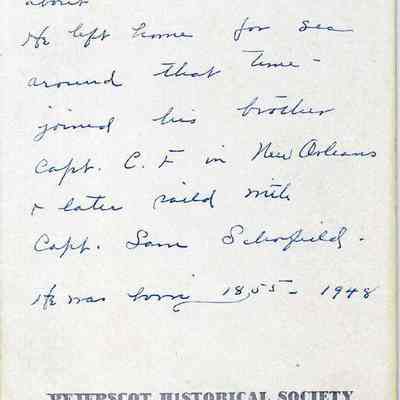 about
He left home for sea
around that time -
joined his brother
Capt. C. F in New Orleans
& later saild with
Capt. Sam Schofield.
He was born 1855 - 1948
PETERSCOT HISTORICAL SOCIETY